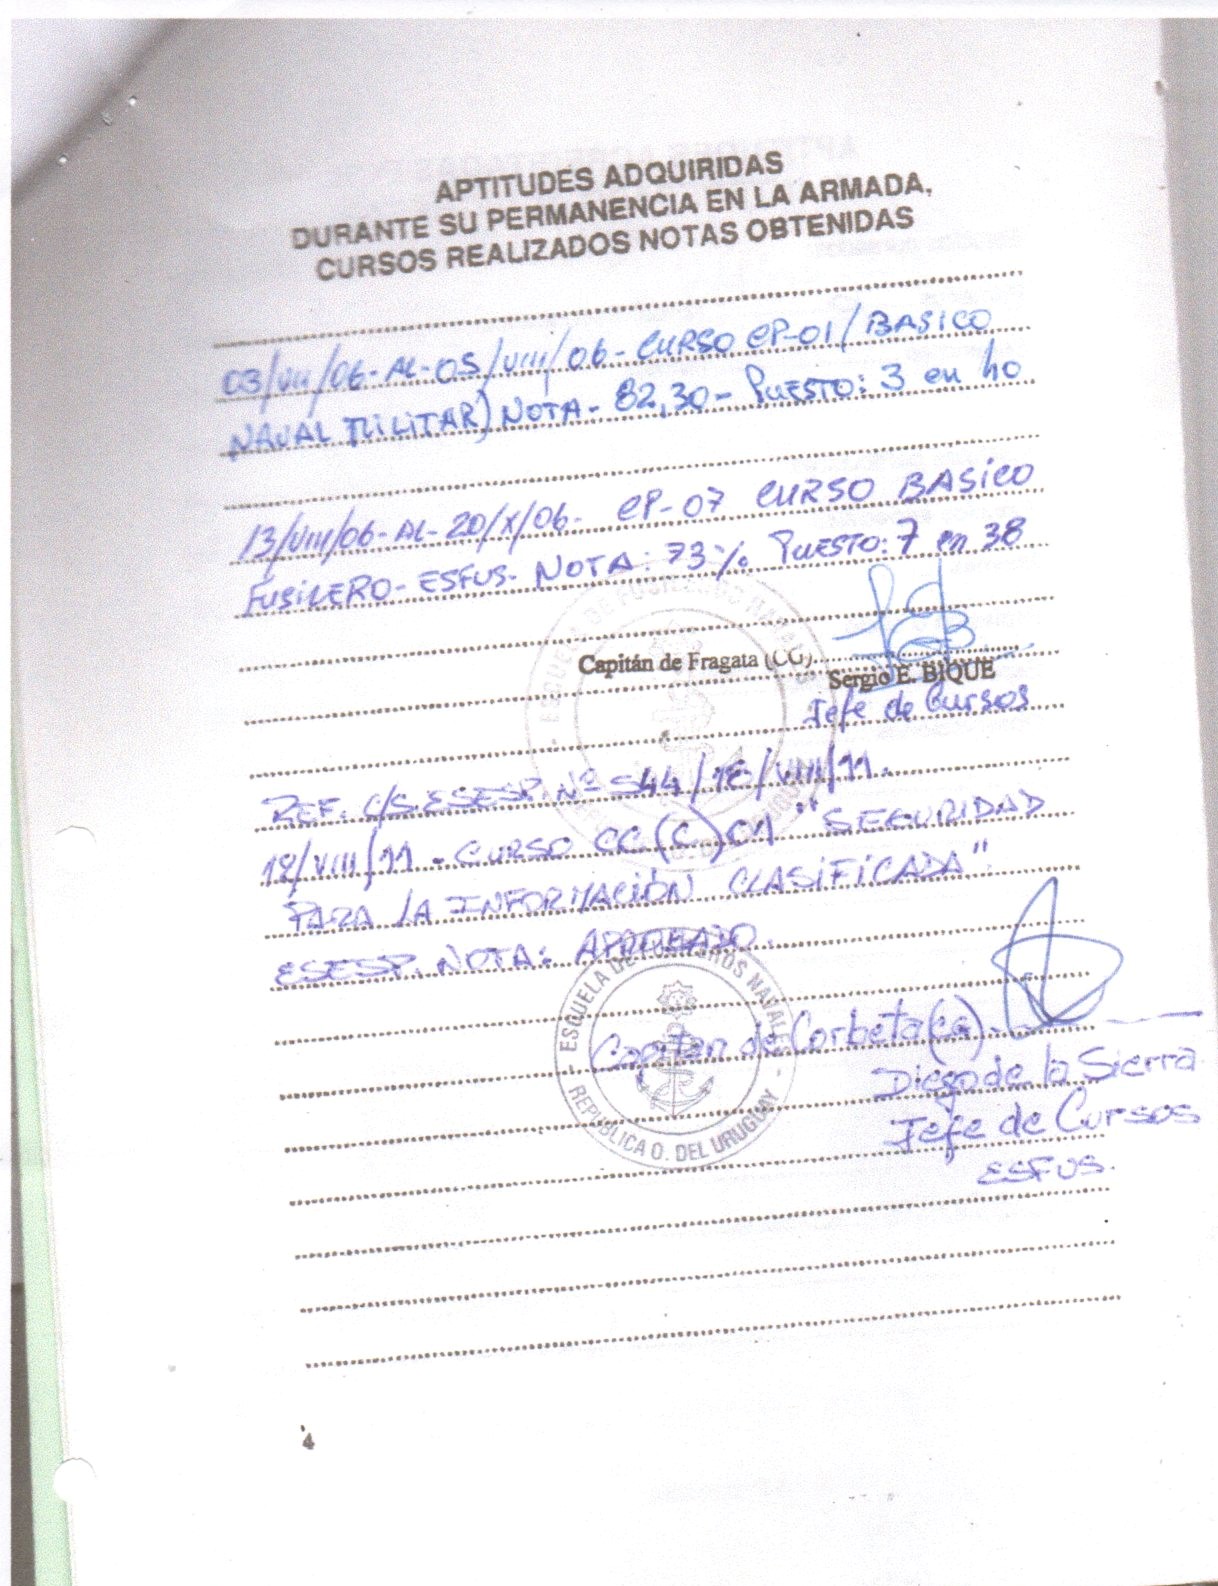 APTITUDES ADQUIRIDAS
DURANTE SU PERMANENCIA EN LA ARMADA,
CURSOS REALIZADOS NOTAS OBTENIDAS
03/VII/06-AL-05/VIII/06- CURSO CP-01/BASICO
NAVAL MILITAR) NOTA- 82,30- PUESTO: 3 en 40
13/VIII/06-AL-20/X/06- CP-07 CURSO BASICO
FUSILERO- ESFUS- NOTA: 73% PUESTO: 7 en 38
Capitán de Fragata (CG)
Sergio E. BIQUE
Jefe de Cursos
ESCUELA DE FUSILEROS NAVALES
REF. C/S.ESESP. Nº 544/18/VIII/11.
18/VIII/11 - CURSO CC(C)01 "SEGURIDAD
PARA LA INFORMACIÓN CLASIFICADA".
ESESP. NOTA: APROBADO.
ESCUELA DE FUSILEROS NAVALES
Capitan de Corbeta (CG)
Diego de la Sierra
Jefe de Cursos
ESFUS.
REPUBLICA O. DEL URUGUAY
4